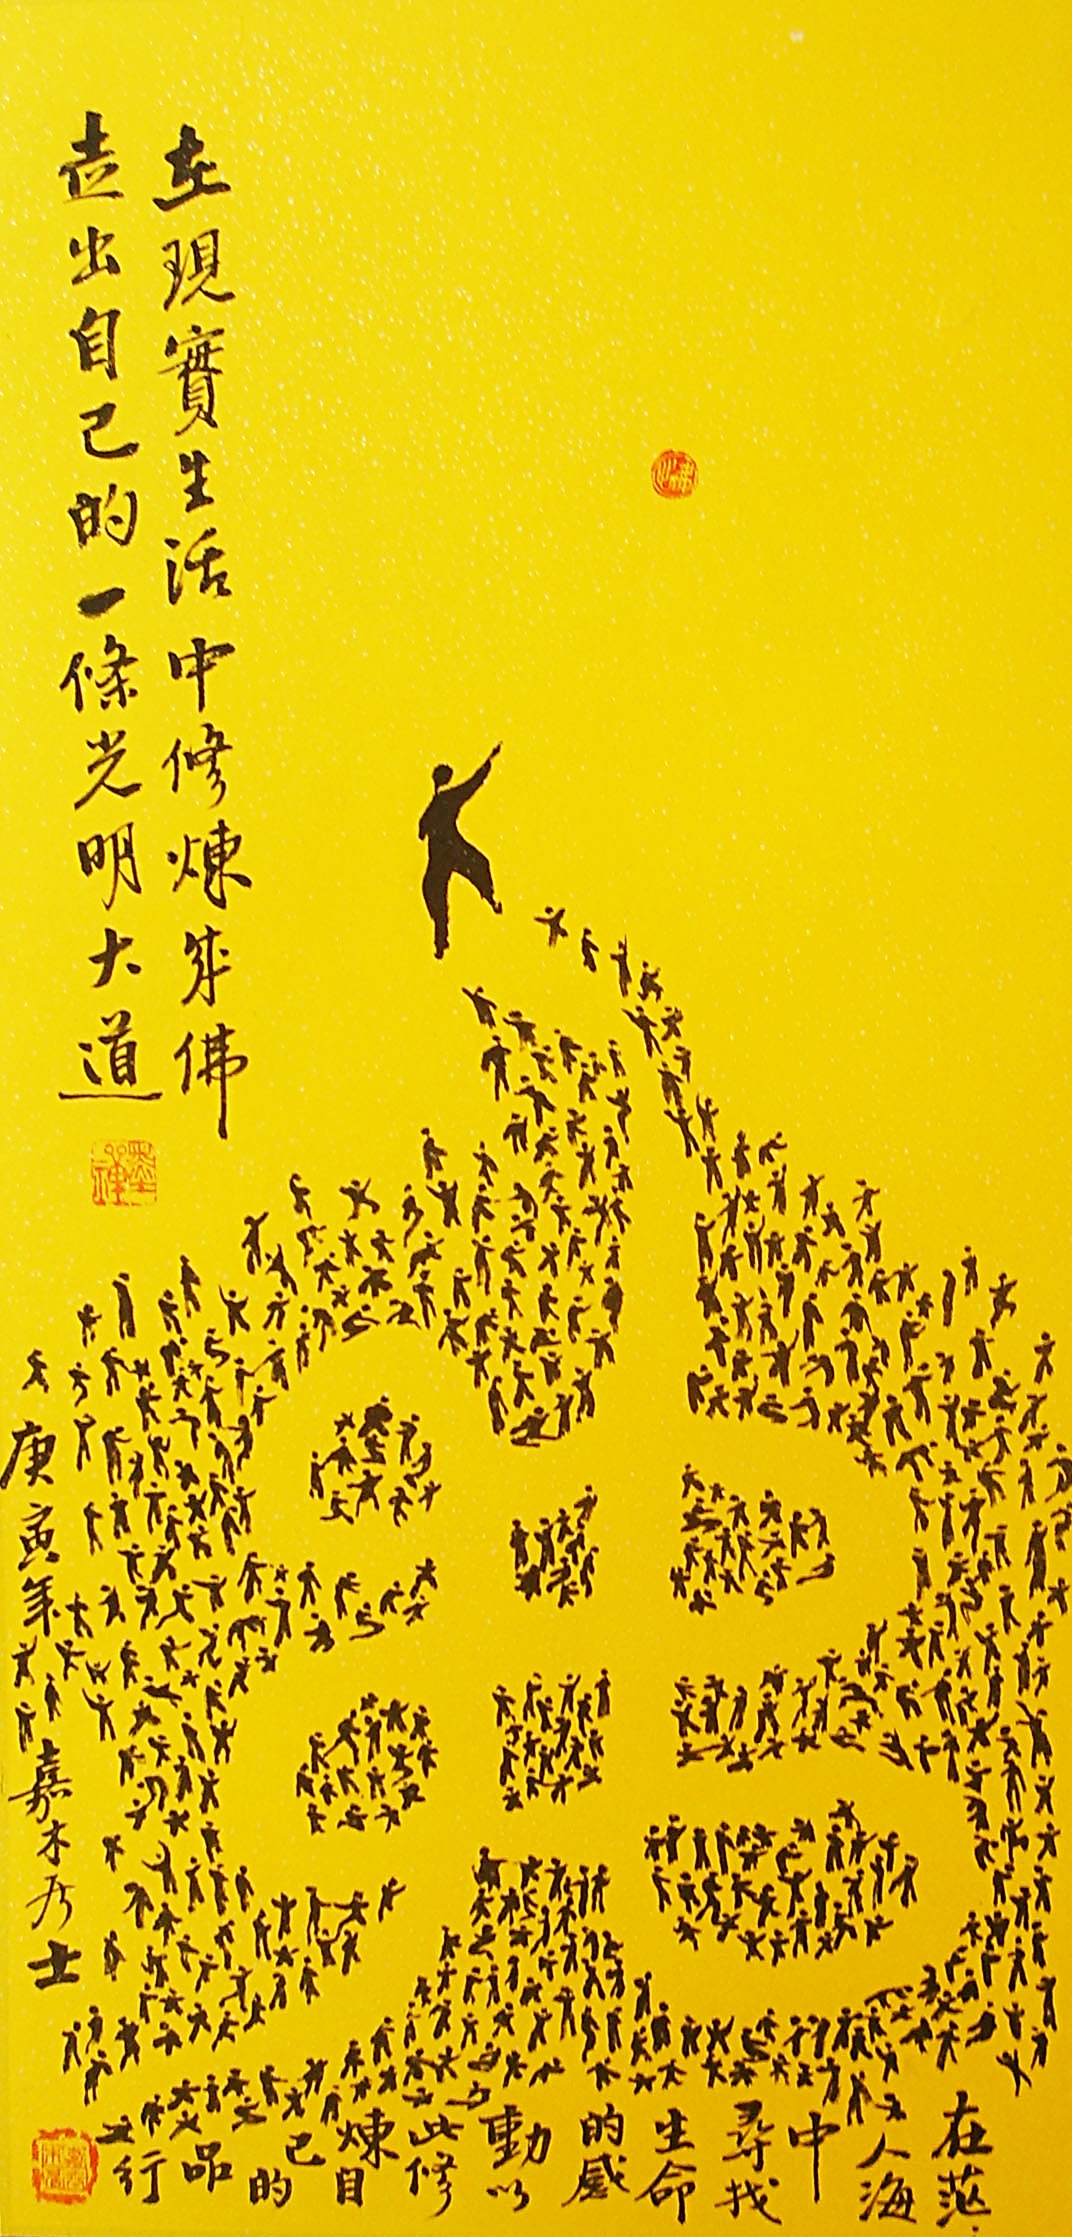 在現實生活中修煉成佛
走出自己的一條光明大道
在茫
人海
中
尋找
生命
的感
動以
此修
煉自
己的
品
行
庚寅年
嘉木居士